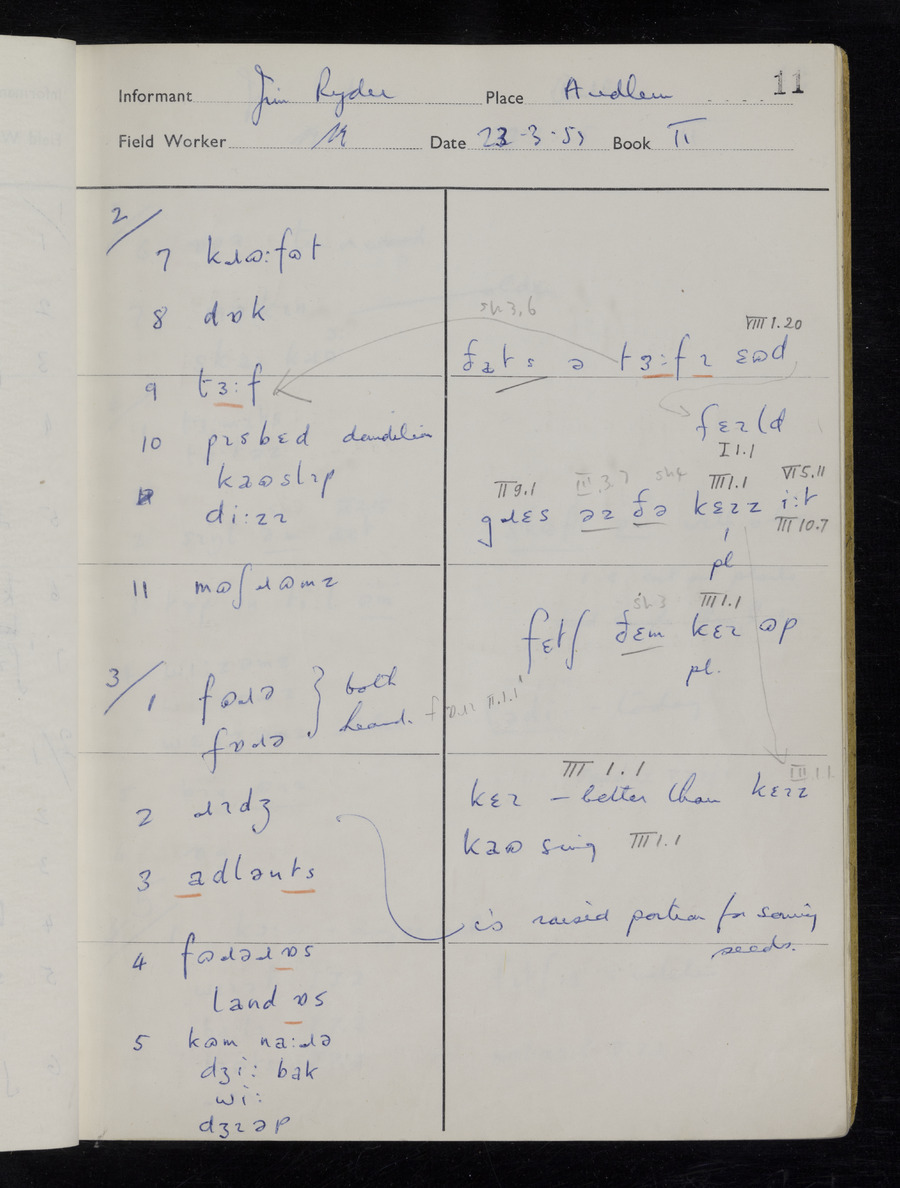 11
Informant Jim Ryder Place Audlem
Field Worker Date 23-3-5 Book II
2/
7 kɹɷ:fɷt
8 dɒk
9 tɜ:f
10 pɪsbɛd dandelion
kaɷslɪp
dɪ:zɪ
11 mɷʃɹɷmz
3/
1 fɷɹə } both
fɒɹə heard.
2 ɹɪdʒ
3 adlənts
4 fɷɹəɹɒs
land ɒs
5 kɷm na:ɹə
dʒi: bak
wi:
dʒɪəp
sh 3,6
VIII 1.20
ðats ə tɜ:fɪ ɛɷd
fɛɪld
I 1.1
II 9.1 III.3.7 sh4 III 1.1 VI 5.11
gɹɛs əz ðə kɛɪz i:t
III 10.7
pl
sh3 III 1.1
fɛtʃ ðɛm kɛɪ ɷp
pl.
III 1.1 III 1.1
kɛɪ – better than kɛɪz
kaɷ sing III 1.1
is raised portion for sowing
seeds.